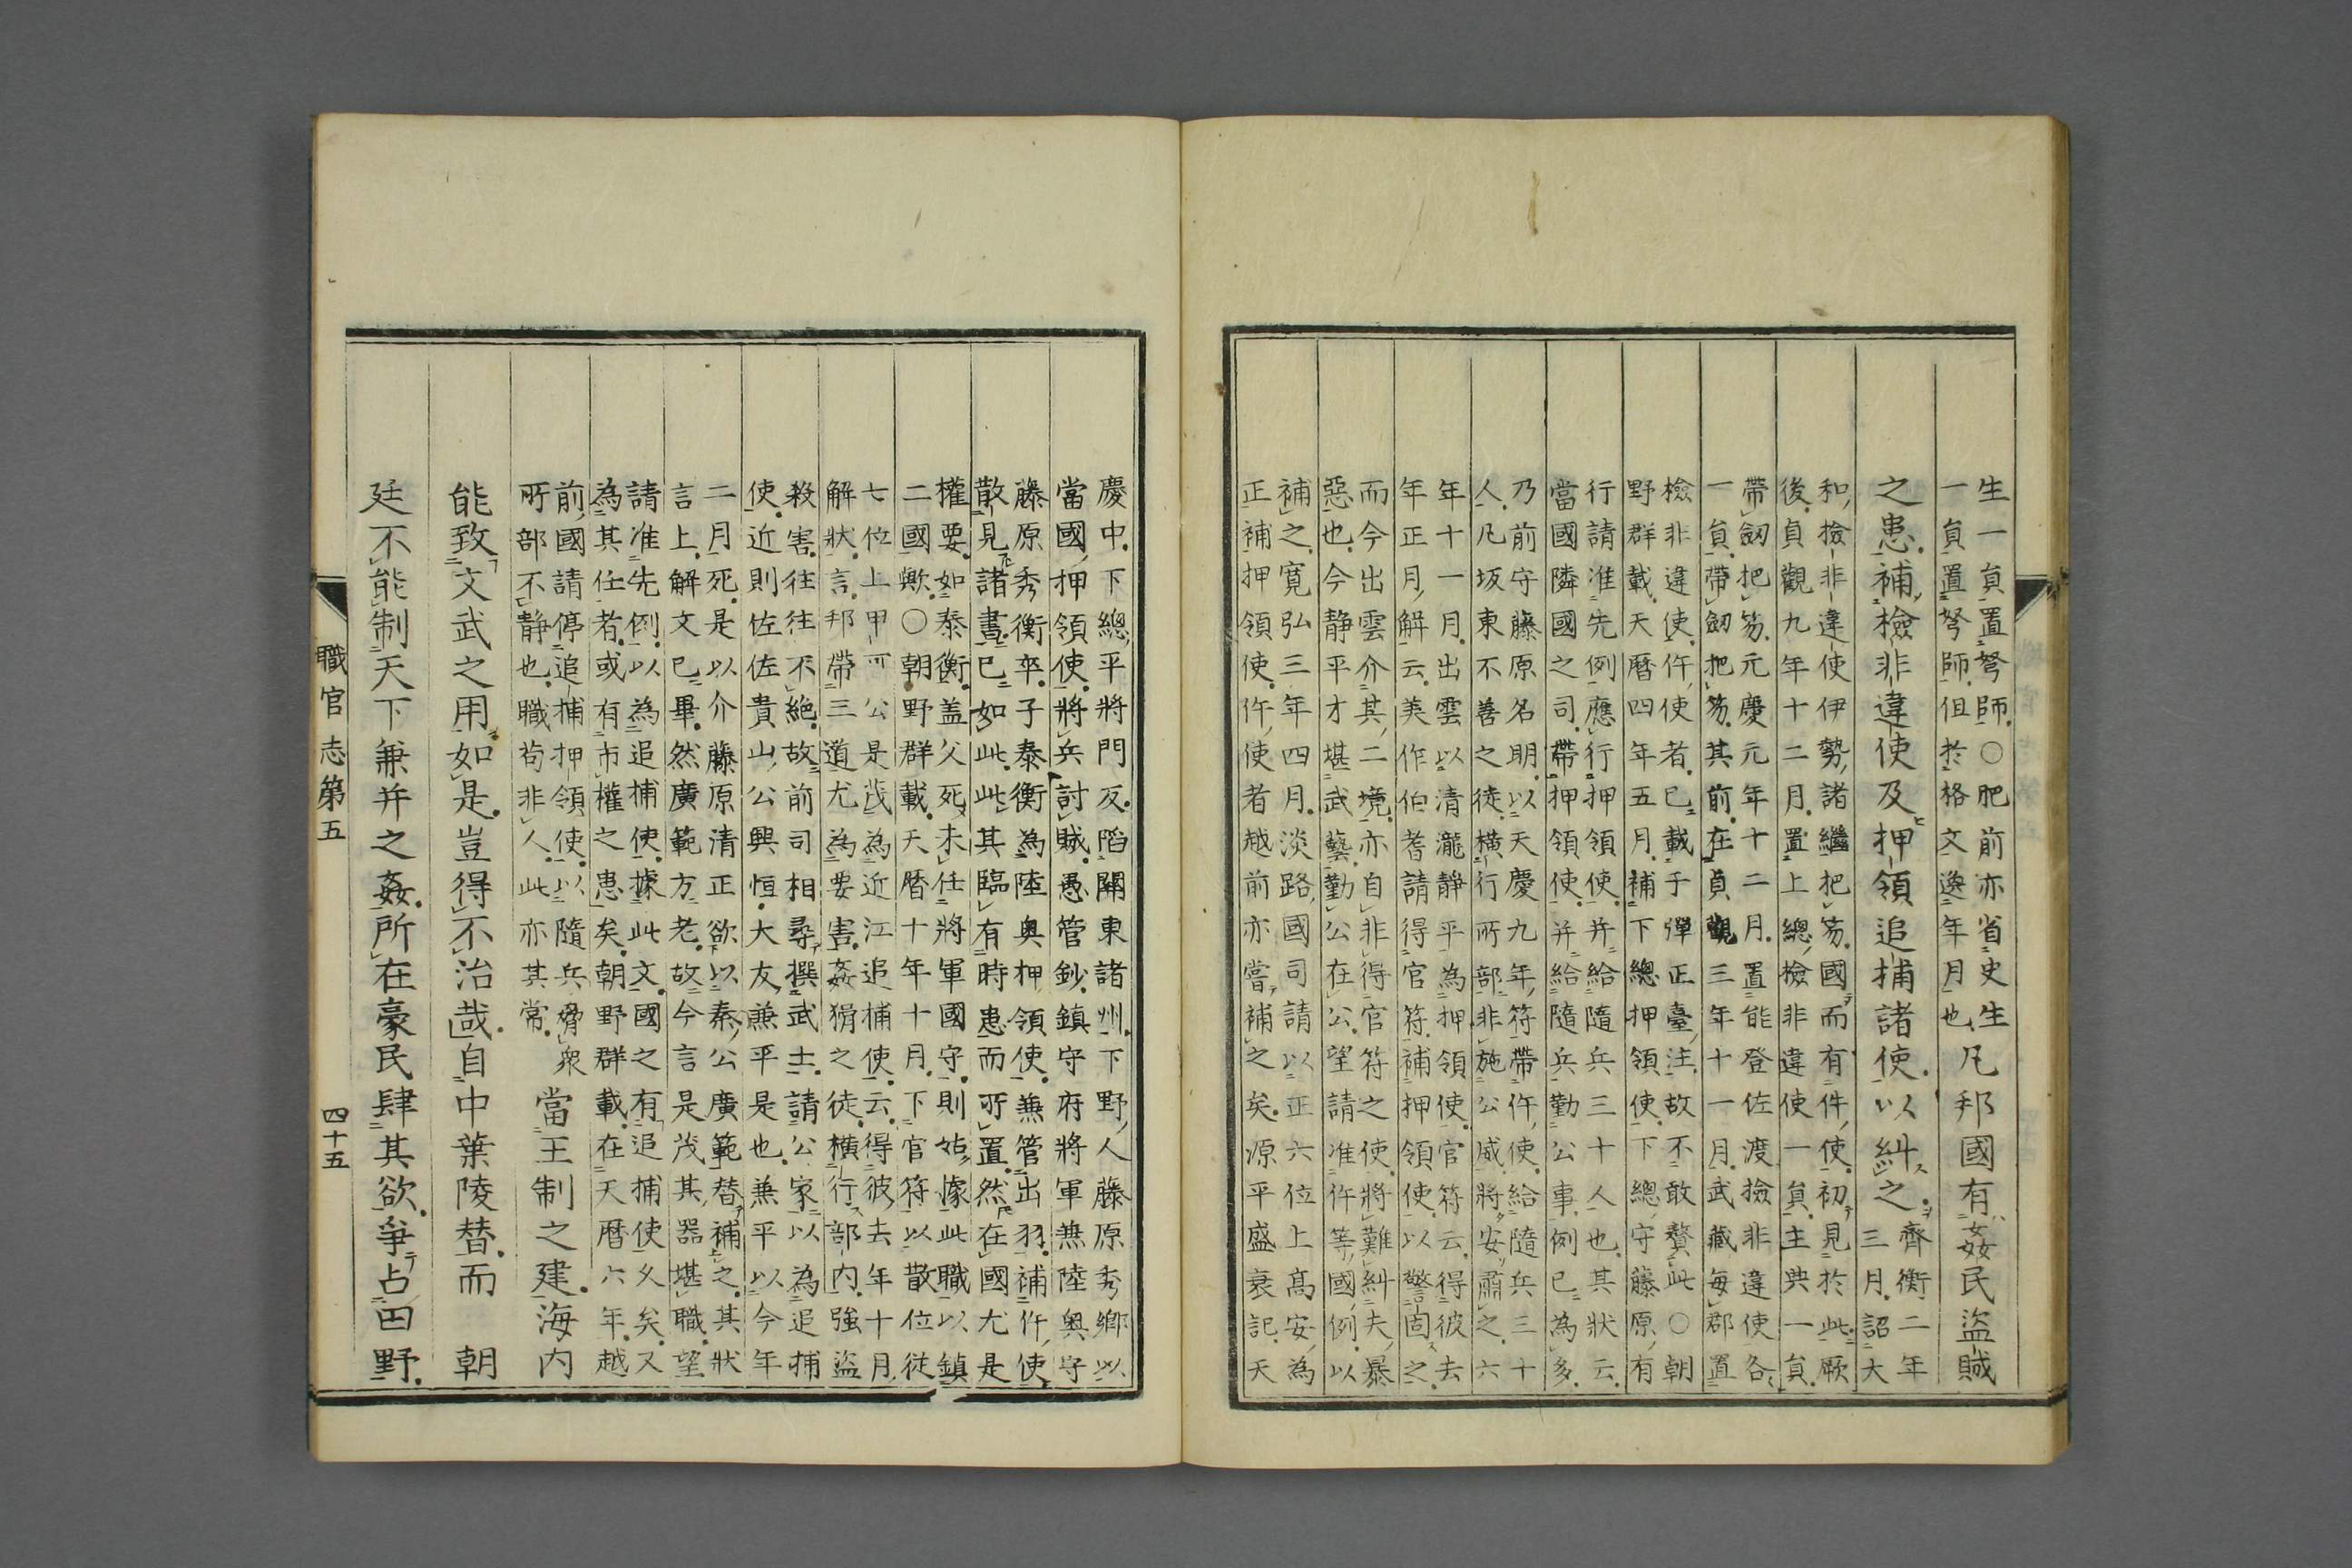 生一員置弩師○肥前亦省史生
一員置弩師但於格文逸年月也
凡邦國有姦民盜賊
之患補檢非違使及押領追捕諸使以糾之
齊衡二年
三月詔大
和檢非違使伊勢諸繼把笏國而有件使初見於此厥
後貞觀九年十二月置上總檢非違使一員主典一員
帶劒把笏元慶元年十二月置能登佐渡檢非違使各
一員帶劒把笏其前在貞觀三年十一月武藏每郡置
檢非違使仵使者已載于彈正臺注故不敢贅此○朝
野群載天曆四年五月補下總押領使下總守藤原有
行請准先例應行押領使并給隨兵三十人也其狀云
當國隣國之司帶押領使并給隨兵勤公事例已為多
乃前守藤原名明以天慶九年符帶仵使給隨兵三十
人凡坂東不善之徒橫行所部非施公威將安肅之六
年十一月出雲以清瀧靜平為押領使官符云得彼去
年正月解云美作伯耆請得官符補押領使以警固之
而今出雲介其二境亦自非得官符之使將難糾夫暴
惡也今靜平才堪武藝勤公在公望請准仵等國例以
補之寬弘三年四月淡路國司請以正六位上高安為
正補押領使仵使者越前亦嘗補之矣源平盛衰記天
慶中下總平將門反陷關東諸州下野人藤原秀鄉以
當國押領使將兵討賊愚管鈔鎮守府將軍兼陸奧守
藤原秀衡卒子泰衡為陸奧押領使兼管出羽補仵使
散見諸書已如此此其臨有時患而所置然在國尤是
權要如泰衡蓋父死未任將軍國守則姑據此職以鎮
二國歟○朝野群載天曆十年十月下官符以散位從
七位上甲可公是茂為近江追捕使云得彼去年十月
解狀言邦帶三道尤為要害姦猾之徒橫行部內強盜
殺害往往不絕故前司相尋撰武士請公家以為追捕
使近則佐佐貴山公興恒大友兼平是也兼平以今年
二月死是以介藤原清正欲以秦公廣範替補之其狀
言上解文已畢然廣範方老故今言是茂其器堪職望
請准先例以為追捕使據此文國之有追捕使久矣又
為其任者或有市權之患矣朝野群載在天曆六年越
前國請停追捕押領使以隨兵脅衆
所部不靜也職苟非人此亦其常
當王制之建海内
能致文武之用如是豈得不治哉自中葉陵替而　朝
廷不能制天下兼并之姦所在豪民肆其欲爭占田野
職官志第五
四十五